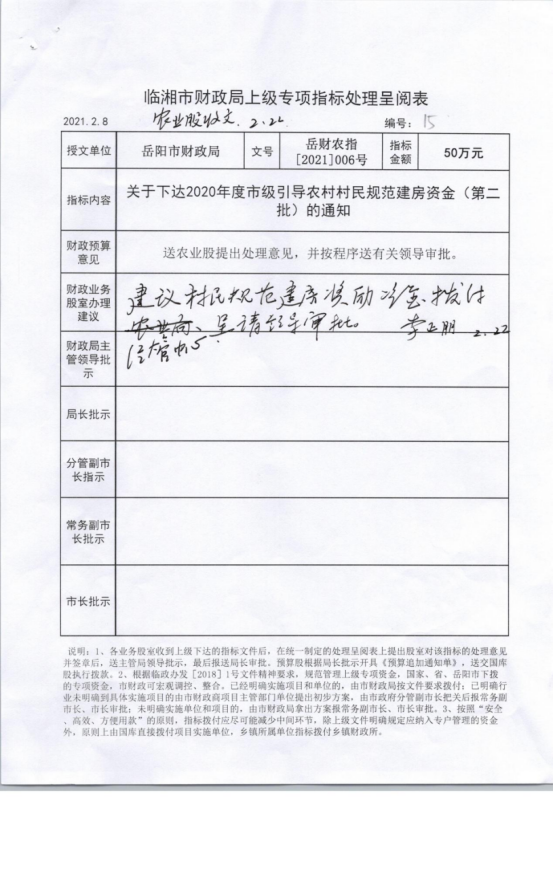 临湘市财政局上级专项指标处理呈阅表
2021.2.8 农业股收文 2.22 编号：15
授文单位 岳阳市财政局 文号 岳财农指[2021]006号 指标金额 50万元
指标内容 关于下达2020年度市级引导农村村民规范建房资金（第二批）的通知
财政预算意见 送农业股提出处理意见，并按程序送有关领导审批。
财政业务股室办理建议 建议村民规范建房奖励资金拨付
呈请领导审批。 2.22
财政局主管领导批示
局长批示
分管副市长指示
常务副市长批示
市长批示
说明：1、各业务股室收到上级下达的指标文件后，在统一制定的处理呈阅表上提出股室对该指标的处理意见
并签章后，送主管局领导批示，最后报送局长审批。预算股根据局长批示开具《预算追加通知单》，送交国库
股执行拨款。2、根据临政办发［2018］1号文件精神要求，规范管理上级专项资金，国家、省、岳阳市下拨
的专项资金，市财政可宏观调控、整合。已经明确实施项目和单位的，由市财政局按文件要求拨付；已明确行
业未明确到具体实施项目的由市财政商项目主管部门单位提出初步方案，由市政府分管副市长把关后报常务副
市长、市长审批；未明确实施单位和项目的，由市财政局拿出方案报常务副市长、市长审批。3、按照“安全
、高效、方便用款”的原则，指标拨付应尽可能减少中间环节，除上级文件明确规定应纳入专户管理的资金
外，原则上由国库直接拨付项目实施单位，乡镇所属单位指标拨付乡镇财政所。